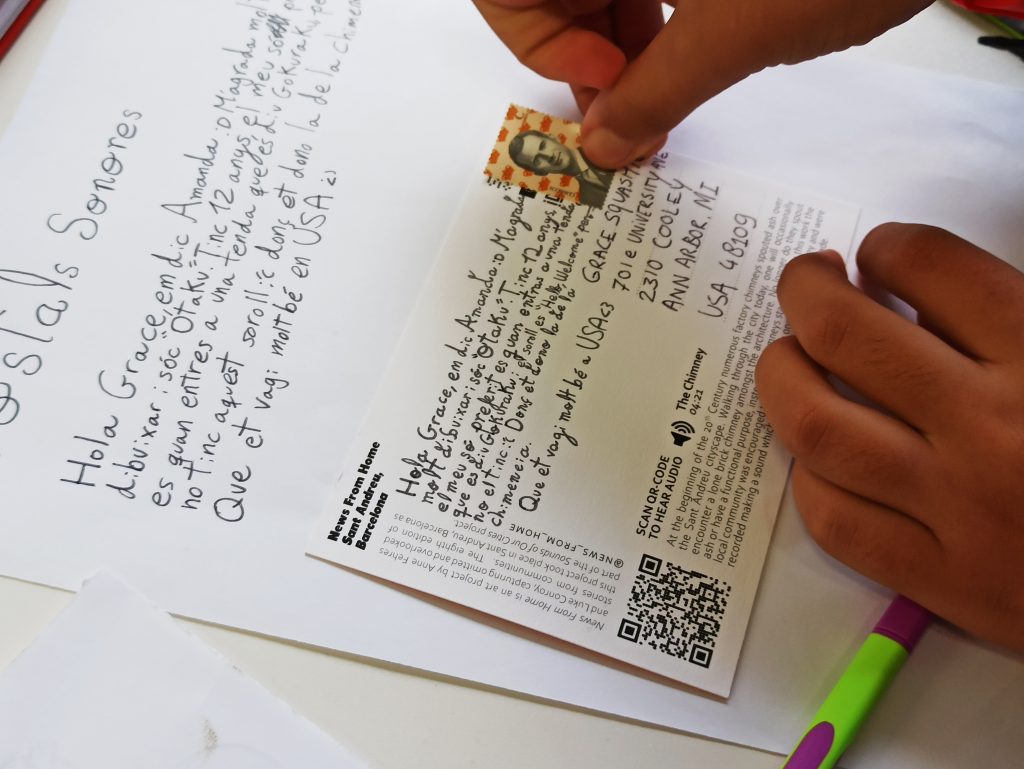 ostals Sonores
Hola Grace, em dic Amanda :D M'agrada mol
dibuixar i sóc "Otaku". Tinc 12 anys, el meu
es quan entres a una tenda que es diu Gokuraku, pe
no tinc aquest soroll :c donç et dono la de la chimen
Que et vagi molt bé en USA <3
News From Home
Sant Andreu,
Barcelona
Hola Grace, em dic Amanda :D M'agrada
molt dibuixar i sóc "Otaku". Tinc 12 anys,
el meu so preferit es quan entras a una tenda
que es diu Gokuraku, el soroll es "Hello, Welcome" però
no el tinc :c Donç et dono la de la
chimeneia.
Que et vagi molt bé a USA <3
GRACE SQUASH
701 e UNIVERSITY AVE
2310 COOLEY
ANN ARBOR, MI
USA 48109
News From Home is an art project by Anne Fehres
and Luke Conroy, capturing omitted and overlooked
stories from communities. The eighth edition of
this project took place in Sant Andreu, Barcelona as
part of the Sounds of Our Cities project.
@NEWS_FROM_HOME
SCAN QR-CODE
TO HEAR AUDIO
The Chimney
04:21
At the beginning of the 20th Century numerous factory chimneys spouted ash over
the Sant Andreu cityscape. Walking through the city today, one will occasionally
encounter a lone brick chimney amongst the architecture. No longer do they spout
ash or have a functional purpose, inste
local community was encouraged
recorded making a sound which